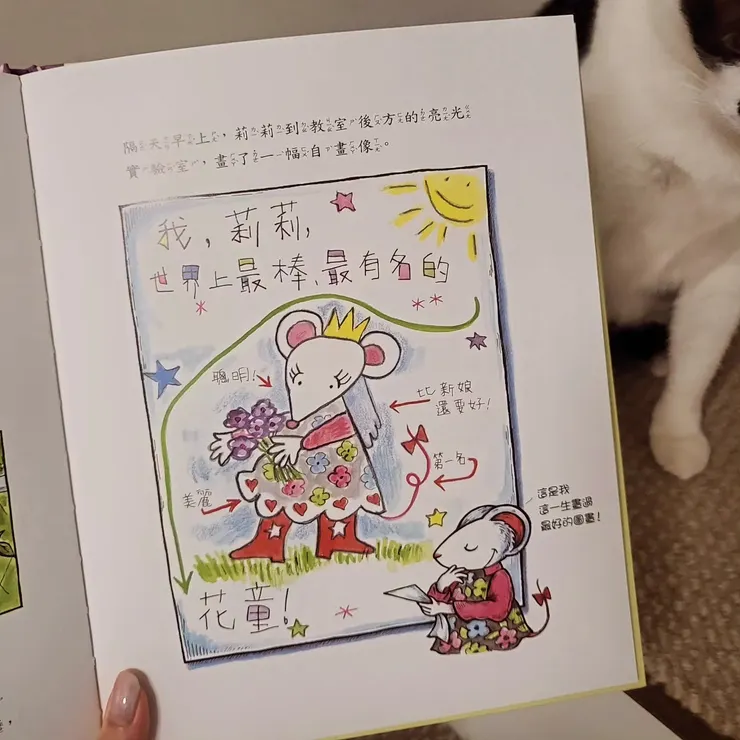 隔天早上，莉莉到教室後方的亮光
實驗室，畫了一幅自畫像。
我，莉莉，
世界上最棒、最有名的
聰明！
比新娘
還要好！
第一名
美麗
這是我
這一生畫過
最好的圖畫！
花童！